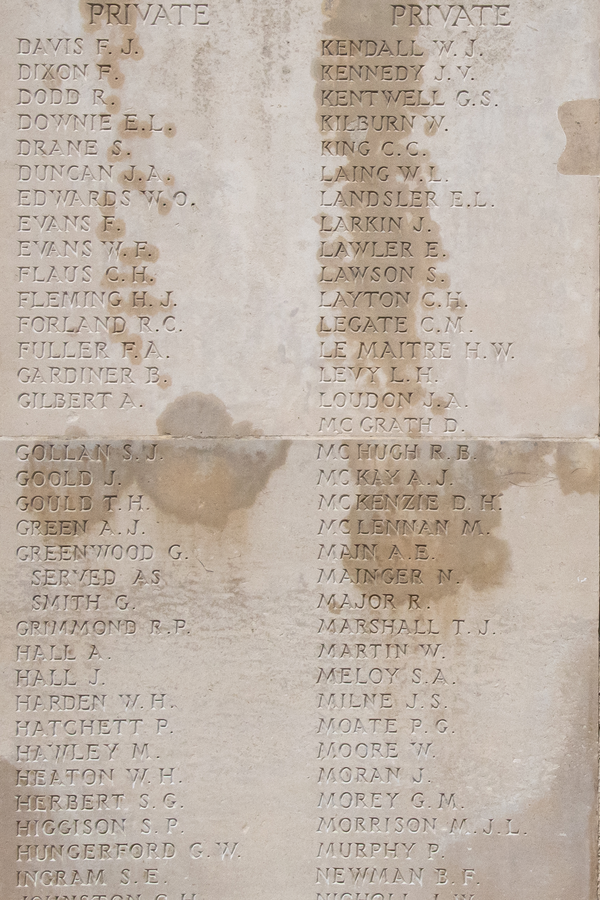 PRIVATE
DAVIS F. J.
DIXON F.
DODD R.
DOWNIE E.L.
DRANE S.
DUNCAN J.A.
EDWARDS W.O.
EVANS F.
EVANS W.F.
FLAUS C.H.
FLEMING H.J.
FORLAND R.C.
FULLER F.A.
GARDINER B.
GILBERT A.
GOLLAN S.J.
GOOLD J.
GOULD T.H.
GREEN A.J.
GREENWOOD G.
SERVED AS
SMITH G.
GRIMMOND R.P.
HALL A.
HALL J.
HARDEN W.H.
HATCHETT P.
HAWLEY M.
HEATON W.H.
HERBERT S.G.
HIGGISON S.P.
HUNGERFORD G.W.
INGRAM S.E.
JOHNSTON C.H.
PRIVATE
KENDALL W.J.
KENNEDY J.V.
KENTWELL G.S.
KILBURN W.
KING C.C.
LAING W.L.
LANDSLER E.L.
LARKIN J.
LAWLER E.
LAWSON S.
LAYTON C.H.
LEGATE C.M.
LE MAITRE H.W.
LEVY L.H.
LOUDON J.A.
MCGRATH D.
MCHUGH R.B.
MCKAY A.J.
MCKENZIE D.H.
MCLENNAN M.
MAIN A.E.
MAINGER N.
MAJOR R.
MARSHALL T.J.
MARTIN W.
MELOY S.A.
MILNE J.S.
MOATE P.G.
MOORE W.
MORAN J.
MOREY G.M.
MORRISON M.J.L.
MURPHY P.
NEWMAN B.F.
NICHOLL J.W.